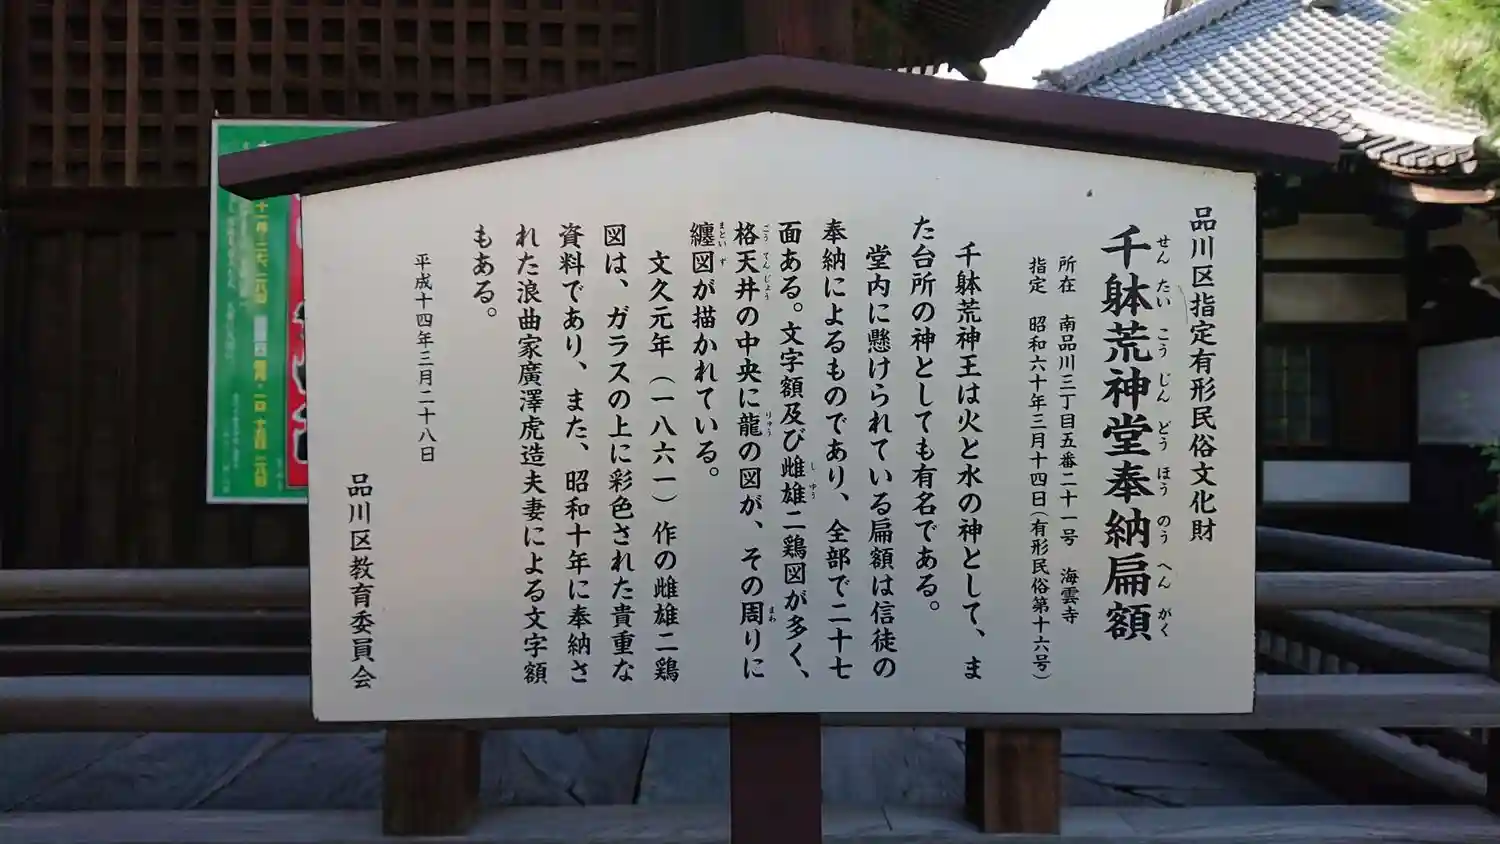 品川区指定有形民俗文化財
千躰荒神堂奉納扁額
せんたいこうじんどうほうのうへんがく
所在 南品川三丁目五番二十一号 海雲寺
指定 昭和六十年三月十四日(有形民俗第十六号)
千躰荒神王は火と水の神として、ま
た台所の神としても有名である。
堂内に懸けられている扁額は信徒の
奉納によるものであり、全部で二十七
面ある。文字額及び雌雄二鶏図が多く、
しゆう
格天井の中央に龍の図が、その周りに
ごうてんじょう りゅう まわ
纏図が描かれている。
まといず
文久元年(一八六一)作の雌雄二鶏
図は、ガラスの上に彩色された貴重な
資料であり、また、昭和十年に奉納さ
れた浪曲家廣澤虎造夫妻による文字額
もある。
平成十四年三月二十八日
品川区教育委員会